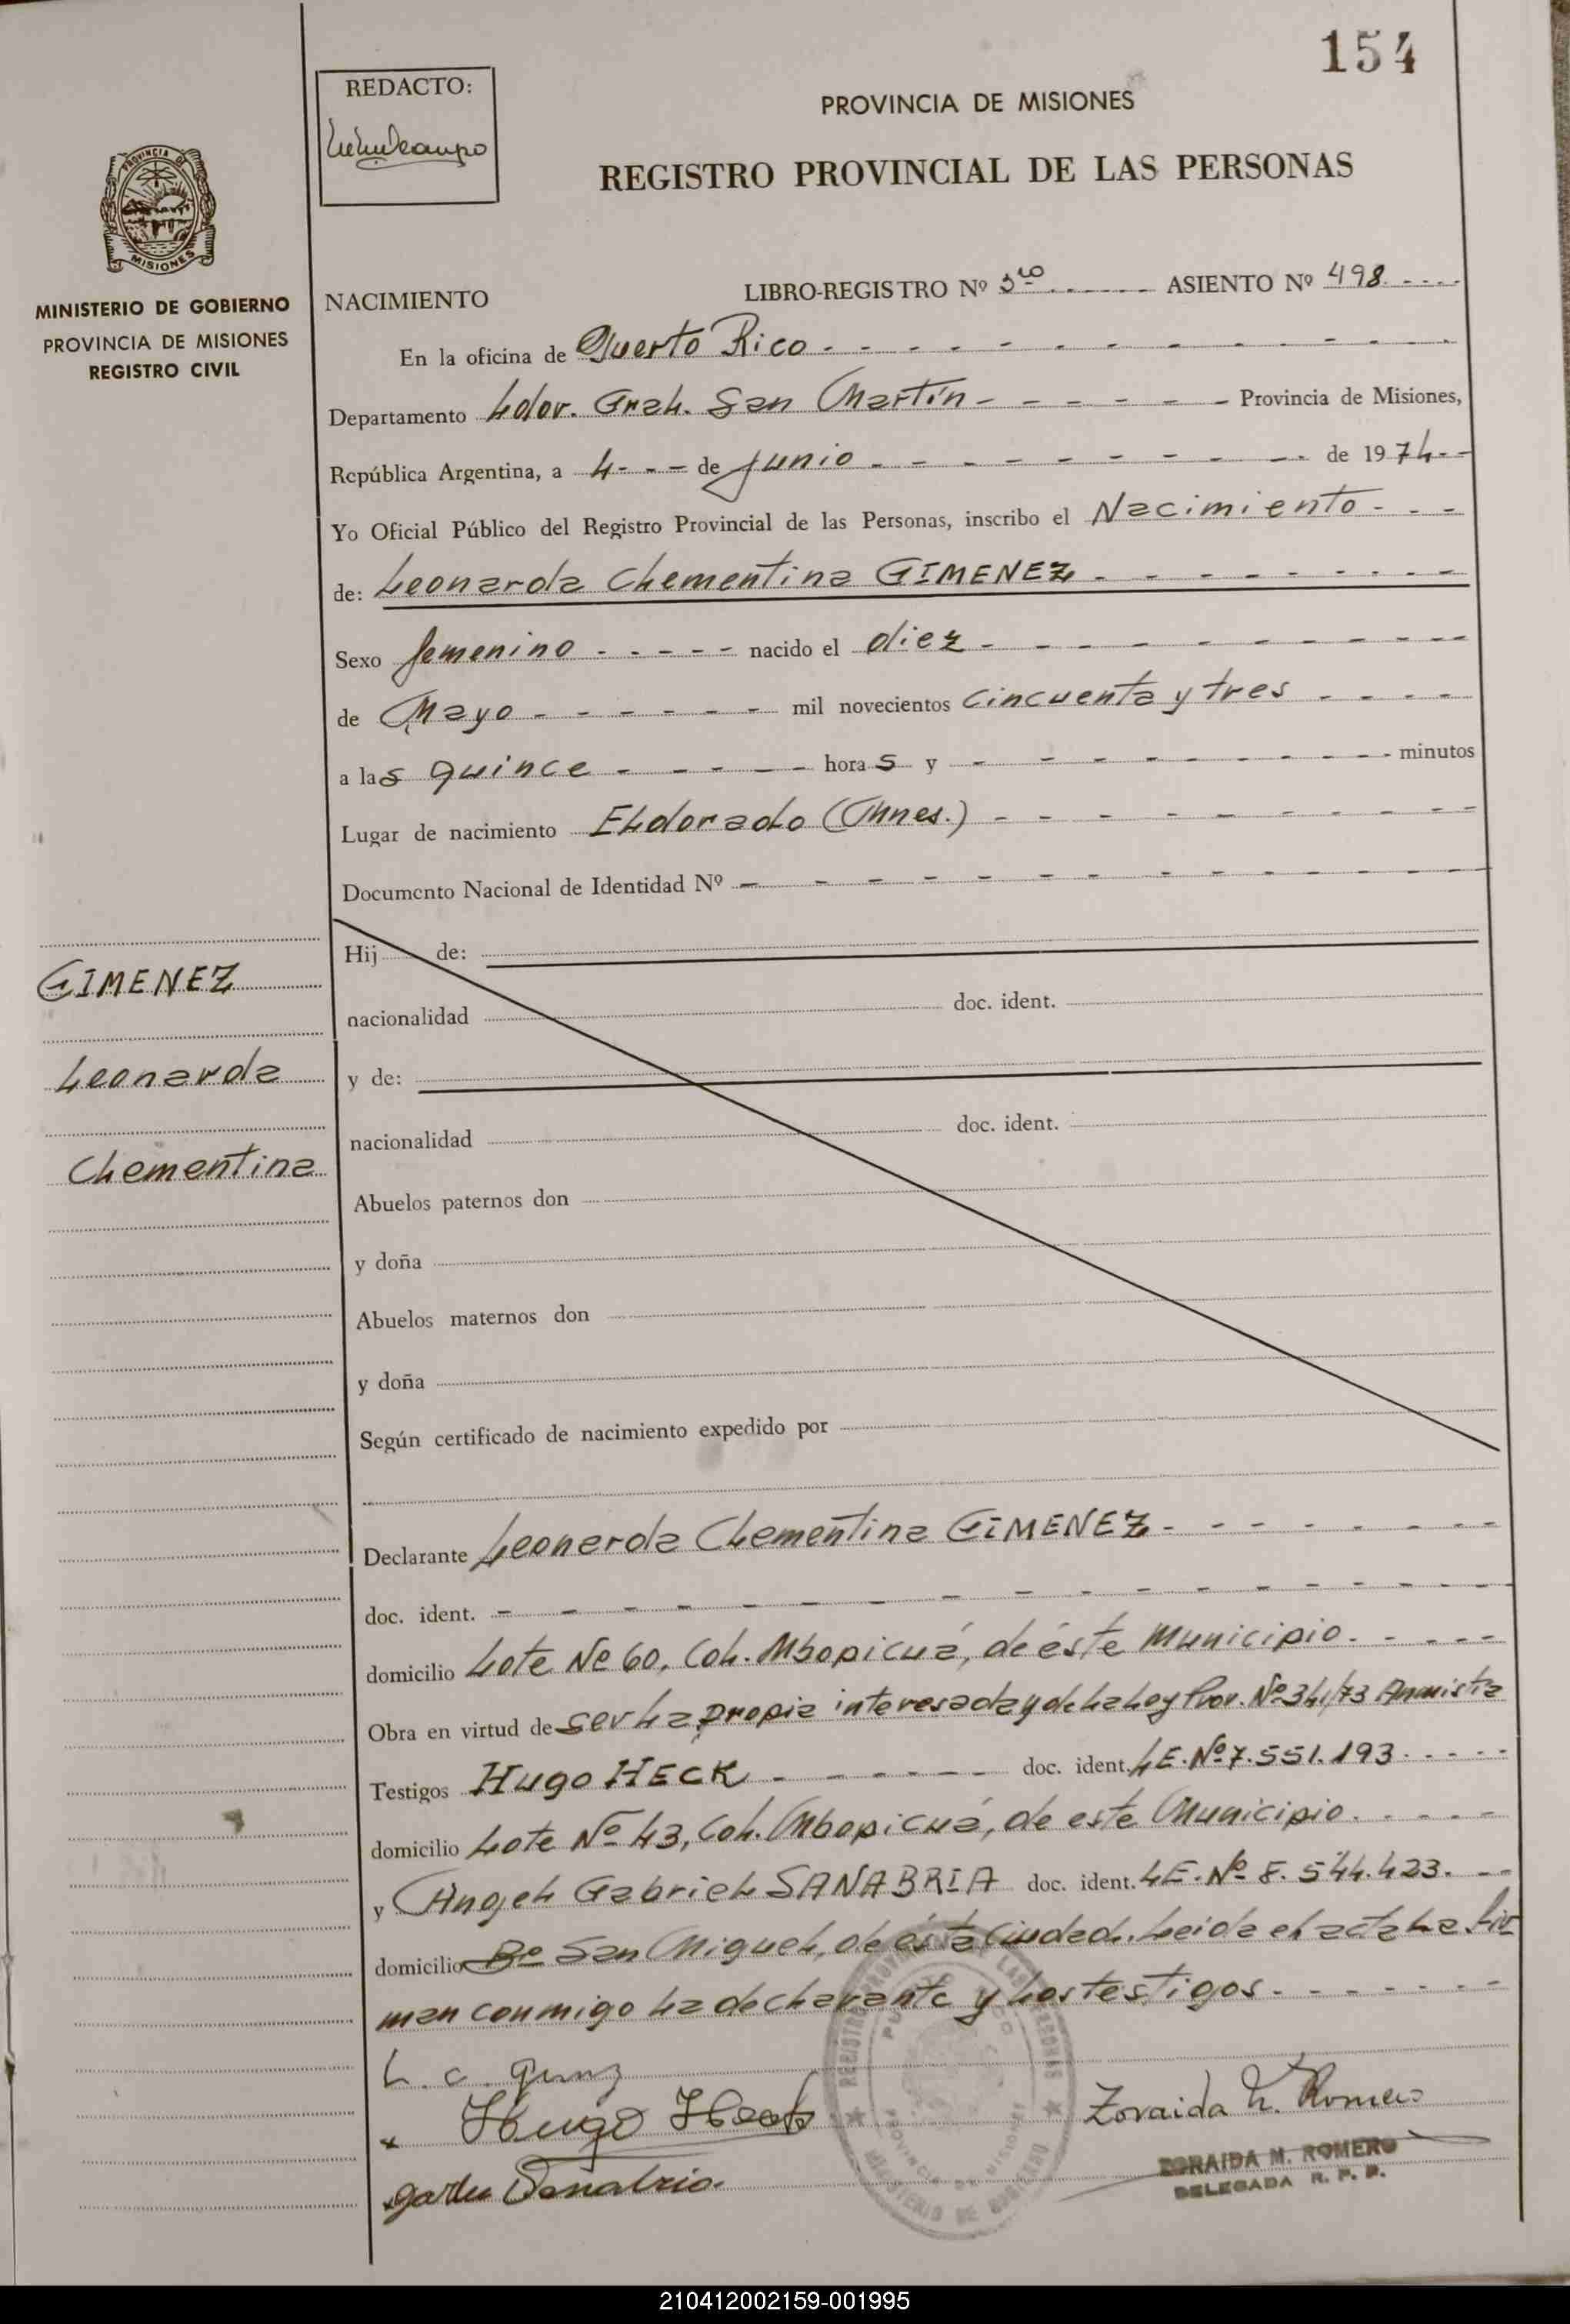 154
REDACTO:
PROVINCIA DE MISIONES
REGISTRO PROVINCIAL DE LAS PERSONAS
PROVINCIA DE
MISIONES
MINISTERIO DE GOBIERNO
PROVINCIA DE MISIONES
REGISTRO CIVIL
NACIMIENTO LIBRO-REGISTRO Nº 3ro ASIENTO Nº 498
En la oficina de Puerto Rico
Departamento Ldor. Gral. San Martín Provincia de Misiones,
República Argentina, a 4 de junio de 1974
Yo Oficial Público del Registro Provincial de las Personas, inscribo el Nacimiento
de: Leonarda Clementina GIMENEZ
Sexo femenino nacido el diez
de Mayo mil novecientos cincuenta y tres
a las quince horas y - minutos
Lugar de nacimiento Eldorado (Mnes.)
Documento Nacional de Identidad Nº -
Hij de:
GIMENEZ
nacionalidad doc. ident.
Leonarda
y de:
nacionalidad doc. ident.
Clementina
Abuelos paternos don
y doña
Abuelos maternos don
y doña
Según certificado de nacimiento expedido por
Declarante Leonarda Clementina GIMENEZ
doc. ident. -
domicilio Lote Nº 60, Col. Mbopicuá, de éste Municipio.
Obra en virtud de ser la propia interesada y de la Ley Prov. Nº 341/73 Amnistia
Testigos Hugo HECK doc. ident. LE. Nº 7.551.193
domicilio Lote Nº 43, Col. Mbopicuá, de este Municipio.
y Angel Gabriel SANABRIA doc. ident. LE. Nº 8.544.423.
domicilio Bº San Miguel, de ésta Ciudad. Leida el acta la fir
man conmigo la declarante y los testigos.
L. C.
x Hugo Heck
Zoraida M. Romero
Sanabria
ZORAIDA M. ROMERO
DELEGADA R. P. P.
REGISTRO PROVINCIAL DE LAS PERSONAS
PUERTO RICO
PROVINCIA DE MISIONES
MINISTERIO DE GOBIERNO
210412002159-001995